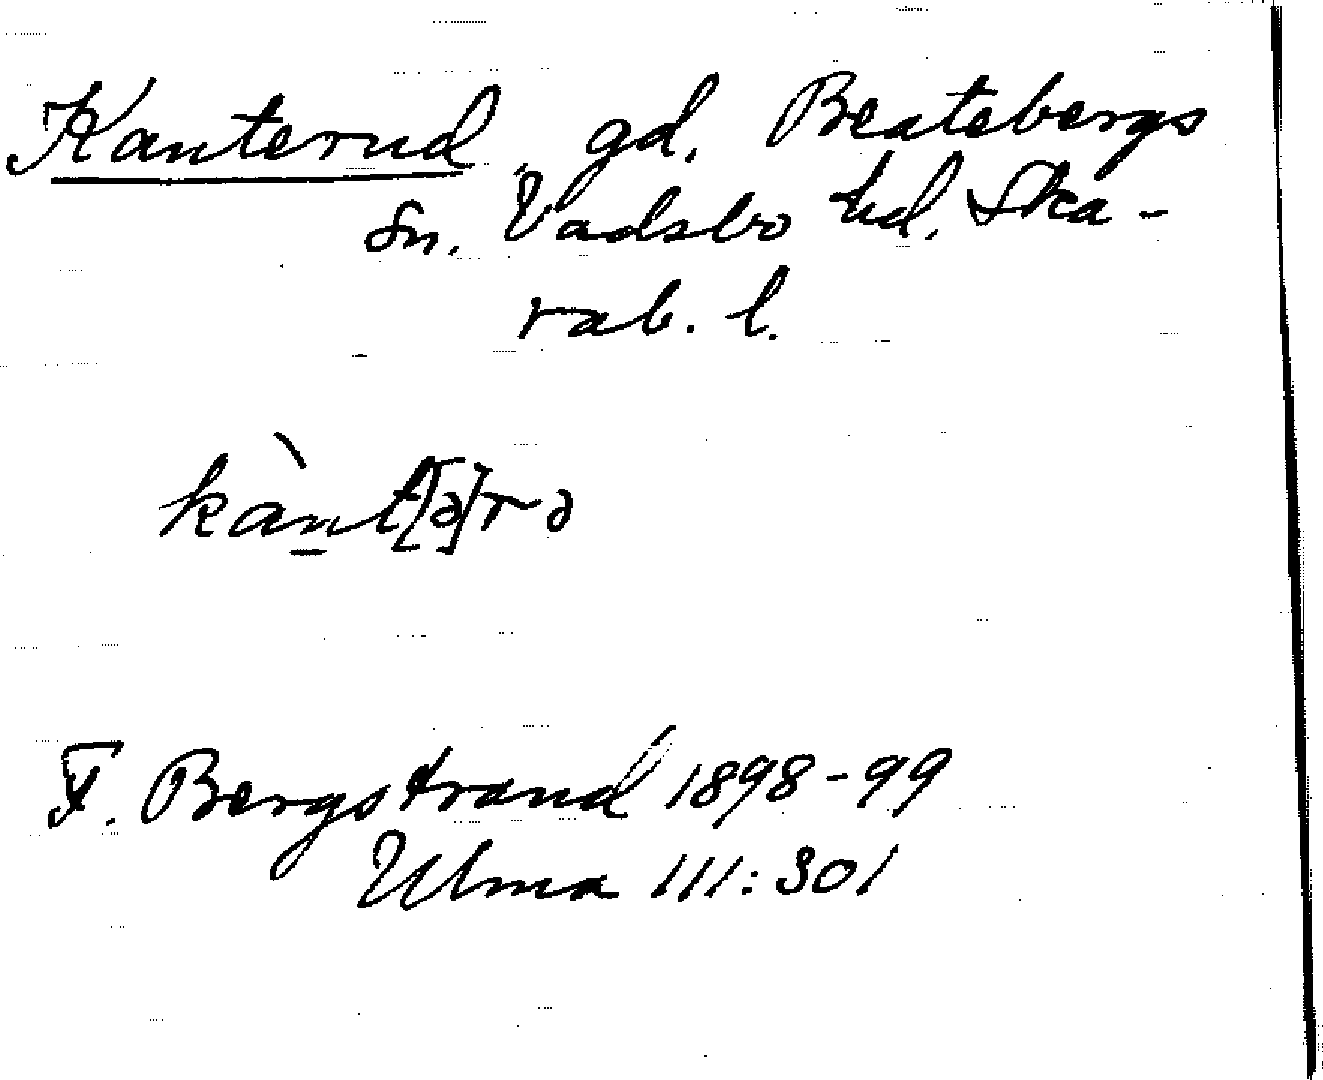 Kanterud, gd. Beatebergs
sn. Vadsbo hd. Ska-
rab. l.
kànt[ə]rə
F. Bergstrand 1898-99
Ulma 111:301